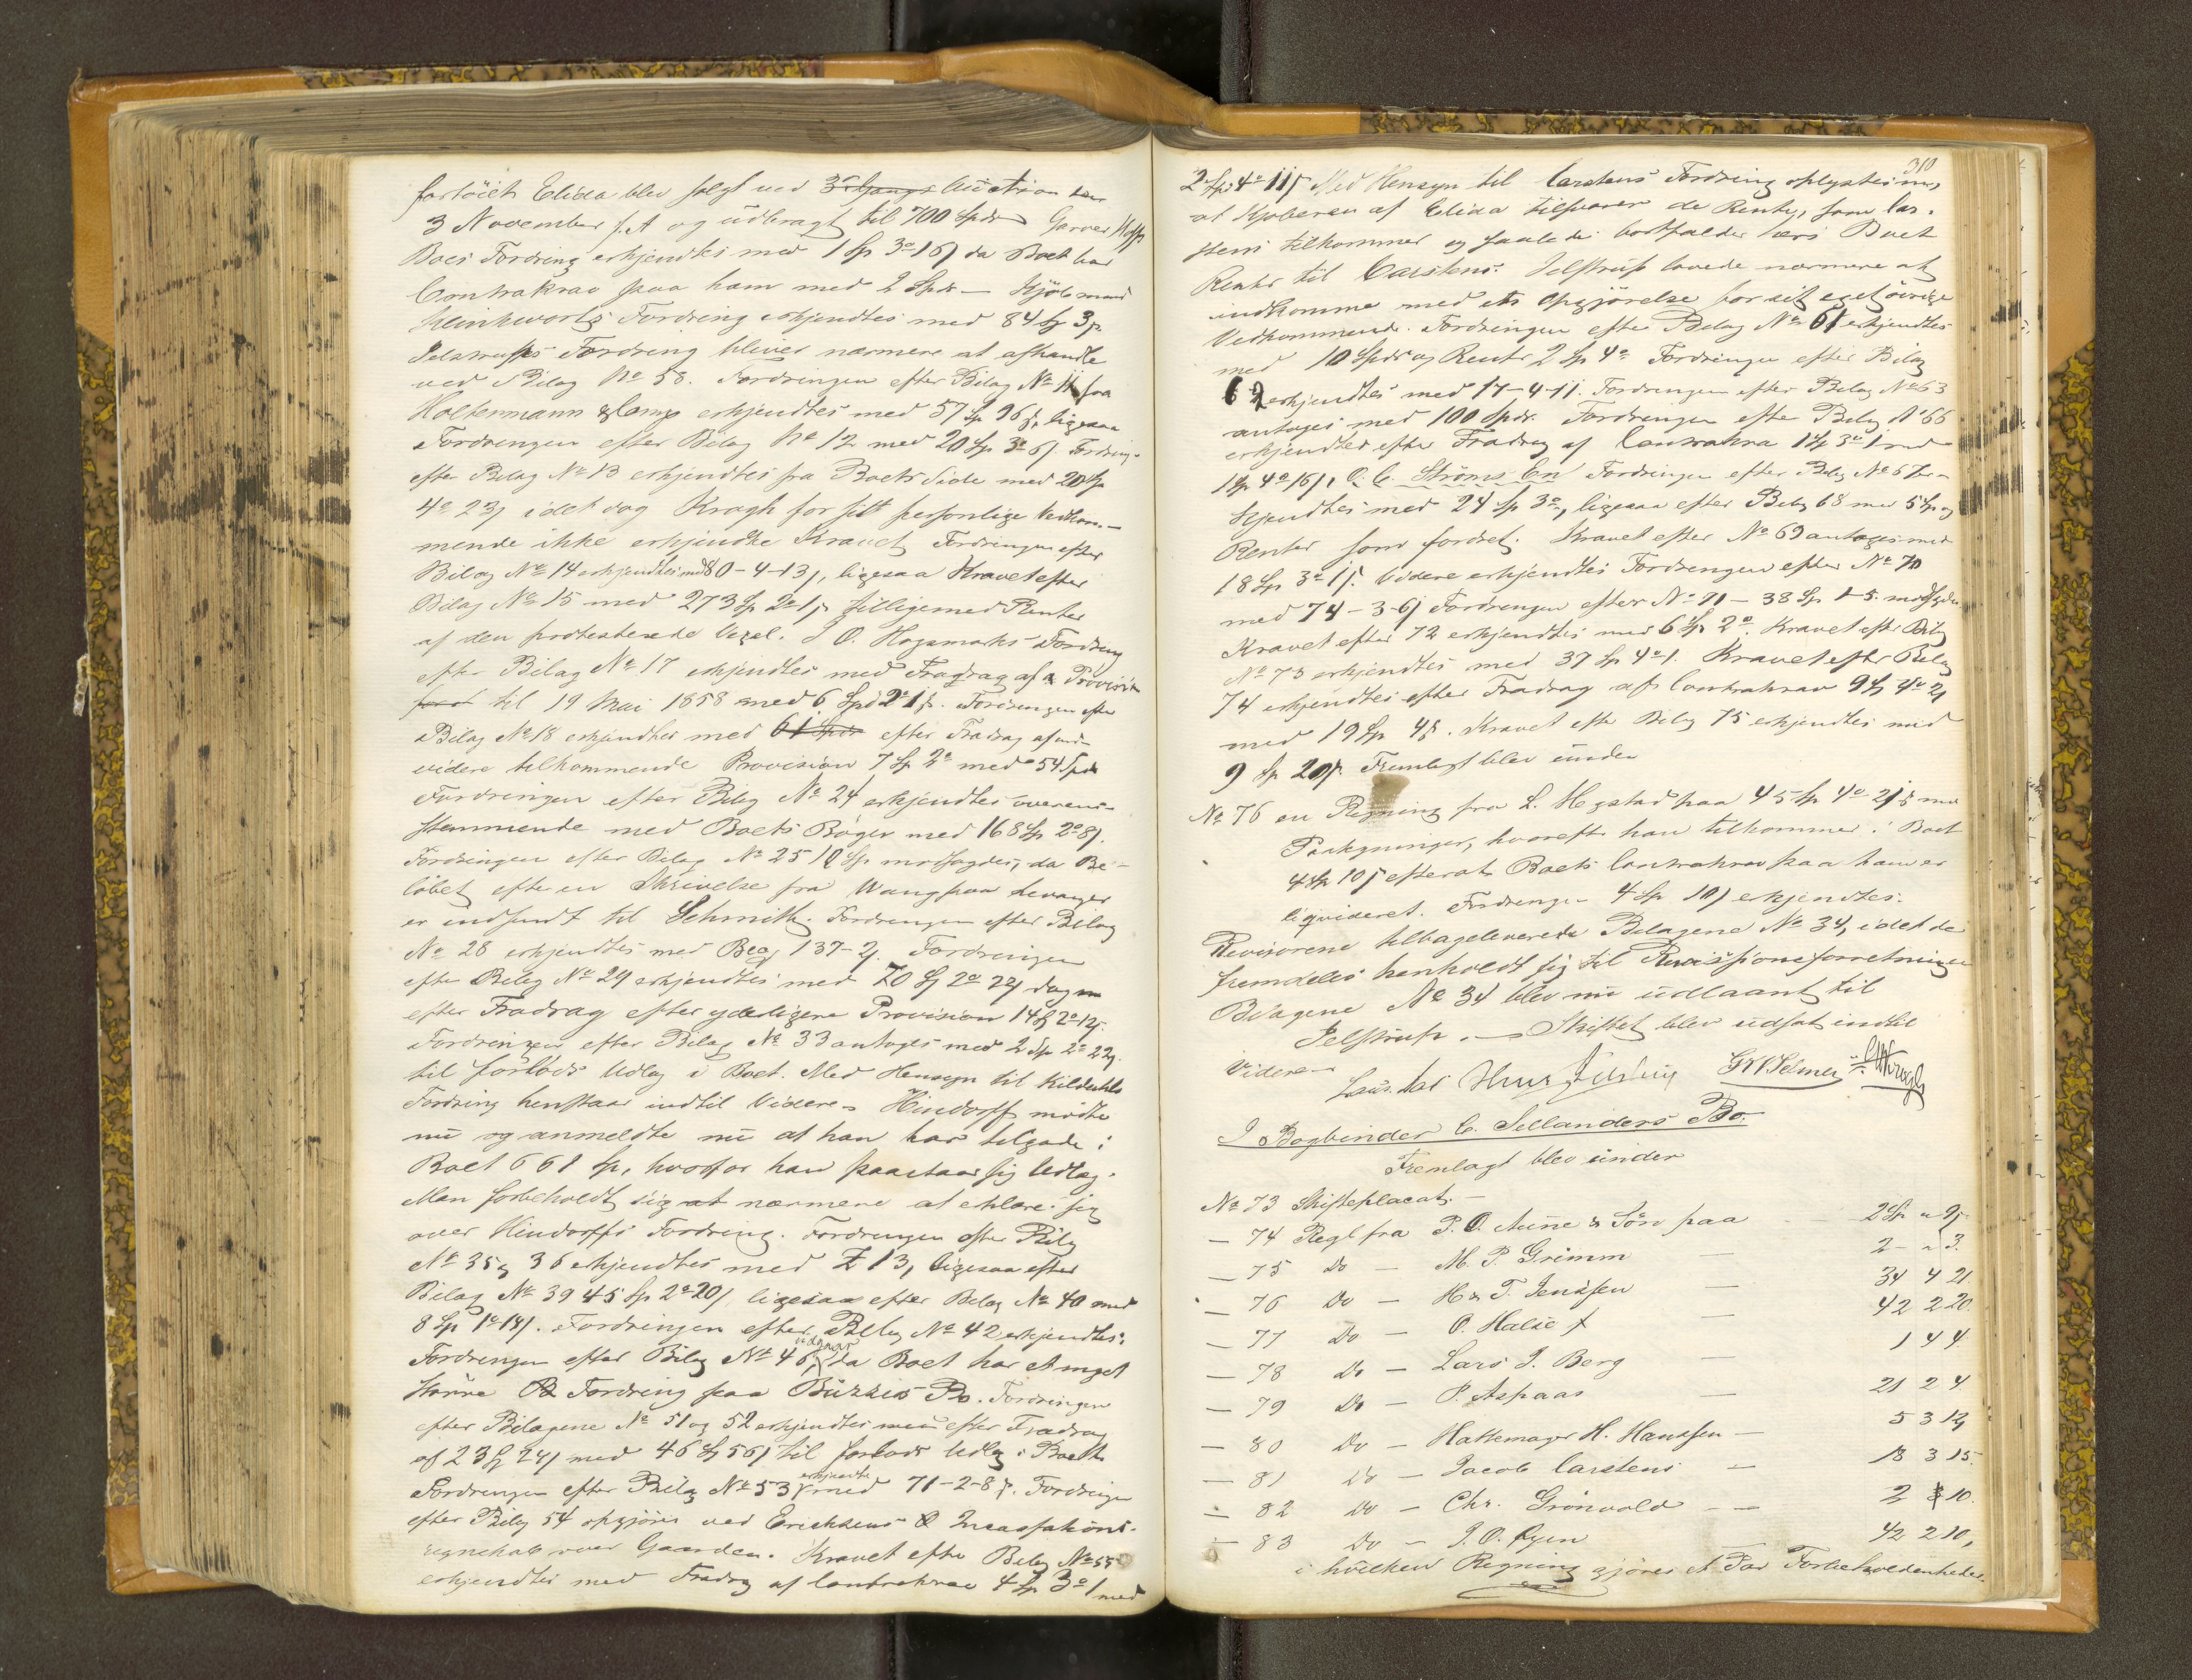 fartöiet Elida blev solgt ved 3die Gangs Auction den
3 November f.A og udbragt til 700 Spdr Garver Hoff
Boes Fordring erkjendtes med 1 Sp 3o 16s da Boet har
Contrakrav paa ham med 2 Spdr – Kjöbmand
Kleinkworts Fordring erkjendtes med 84 Sp 3s
Jelstrups Fordring bliver nærmere at afhandle
ved Bilag No 58. Fordringen efter Bilag No 11 fra
Holtermann & Comp erkjendtes med 57 Sp 96s, ligesaa
Fordringen efter Bilag No 12 med 20 Sp 3o 6s. Fordring
efter Bilag No 13 erkjendtes fra Boets Side med 20 Sp
4o 23s idet dog Krogh for sitt personlige Vedkom-
mende ikke erkjendte Kravet. Fordringen efter
Bilag No 14 erkjendtes med 80-4-13s, ligesaa Kravet efter
Bilag No 15 med 273 Sp 2o 1s tilligemed Renter
af den protesterede Vexel. J O. Hogsmoks Fordring
efter Bilag No 17 erkjendtes med Fradrag af Provision
til 19 Mai 1858 med 6 Spd 2o 1s. Fordringen efter
Bilag No 18 erkjendtes med 61 Spdr efter Fradrag af
videre tilkommende Provision 7 Sp 2o med 54 Spdr
Fordringen efter Bilag No 24 erkjendtes overens-
stemmende med Boets Böger med 168 Sp 2o 8s.
Fordringen efter Bilag No 25 10 Sp modsagdes, da Be-
löbet efter en Skrivelse fra Wang paa Levanger
er indsendt til Schmith. Fordringen efter Bilag
No 28 erkjendtes med 137-2s. Fordringen
efter Bilag No 29 erkjendtes med 70 Sp 2o 22s dog
efter Fradrag efter yderligere Provision 14 Sp 2o 12s.
Fordringen efter Bilag No 33 antoges med 2 Sp 2o 22s.
til forlods Udlæg i Boet. Med Hensyn til Kildahls
Fordring henstaar indtil Videre. Hindorff mödte
nu og anmeldte nu at han har tilgode i
Boet 661 Sp, hvorfor han paastaar sig Udlæg.
Man forbeholdt sig at nærmere at erklære sig
over Hindorffs Fordring. Fordringen efter Bilag
No 35 og 36 erkjendtes med £ 13, ligesaa efter
Bilag No 39 45 Sp 2o 20s, ligesaa efter Bilag No 40 med
8 Sp 1o 18s. Fordringen efter Bilag No 42 erkjendtes.
Fordringen efter Bilag No 46 udgaar, da Boet har et meget
större Fordring paa Büzzis Bo. Fordringen
efter Bilagene No 51 og 52 erkjendtes men efter Fradrag
af 23 Sp 24s med 46 Sp 56s til forlods Udlæg i Boet
Fordringen efter Bilag No 53 erkjendtes med 71-2-8s. Fordringen
efter Bilag 54 opgjöres ved Erichsens Incassations-
regnskab over Gaarden. Kravet efter Bilag No 55
erkjendtes med Fradrag af Contrakrav 4 Sp 3o 1 med
310
2 Sp 4o 11s. Med Hensyn til Carstens Fordring oplystes
at Kjöberen af Elida tilsvarer de Renter, som Car-
stens tilkommer og saaledes bortfalder Boet
Renter til Carstens. Jelstrup lovede nærmere at
indkomme med en Opgjörelse for sit eget övrige
Vedkommende. Fordringen efter Bilag No 61 erkjendtes
med 10 Spdr og Renter 2 Sp 4o Fordringen efter Bilag
62 erkjendtes med 17-4-11. Fordringen efter Bilag No 63
antoges med 100 Spdr. Fordringen efter Bilag No 66
erkjendtes efter Fradrag af Contrakrav 1 Sp 3o 1 med
1 Sp 4o 16s, O. C. Ströms En. Fordringen efter Bilag No 67 er-
kjendtes med 24 Sp 3o, ligesaa efter Bilag 68 med 5 Sp og
Renter som fordret. Kravet efter No 69 antoges med
18 Sp 3o 1s. Videre erkjendtes Fordringen efter No 70
med 74-3-6s Fordringen efter No 71 – 38 Sp 1-5. modsagdes
Kravet efter 72 erkjendtes med 6 Sp 2o. Kravet efter Bilag
No 73 erkjendtes med 37 Sp 4o 1. Kravet efter Bilag
74 erkjendtes efter Fradrag af Contrakrav 9 Sp 4o 2s
med 19 Sp 4s. Kravet efter Bilag 75 erkjendtes med
9 Sp 20s. Fremlagt blev under
No 76 en Regning fra L. Hegstad paa 45 Sp 4o 21s med
Paategninger, hvorefter han tilkommer i Boet
4 Sp 10s efterat Boets Contrakrav paa ham er
liqvideret. Fordringen 4 Sp 10s erkjendtes.
Revisorene tilbageleverede Bilagene No 34, idet de
fremdeles henholdt sig til Revissionsforretningen
Bilagene No 34 blev nu udlaant til
Jelstrup. – Skiftet blev udsat indtil
Videre –
I Bogbinder C. Sellanders Bo.
Fremlagt blev under
No 73 Skifteplacat. –
– 74 Regl fra P. O. Aune & Sön paa 2 Sp " 9s
– 75 Do – M. P. Grimm — 2 – " 3.
– 76 Do – H & F. Jenssen — 34 4 21
– 77 Do – O. Halse — 42 2 20.
– 78 Do – Lars J. Berg — 1 4 4
– 79 Do – P. Aspaas — 21 2 4
– 80 Do – Hattemager H. Hanssen – 5 3 12,
– 81 Do – Jacob Carstens — 18 3 15.
– 82 Do – Chr. Grönvold – – 2 3 10.
– 83 Do – J. O. Øyen 42 2 10,
i hvilken Regning gjöres et Par Forbeholdenheder.